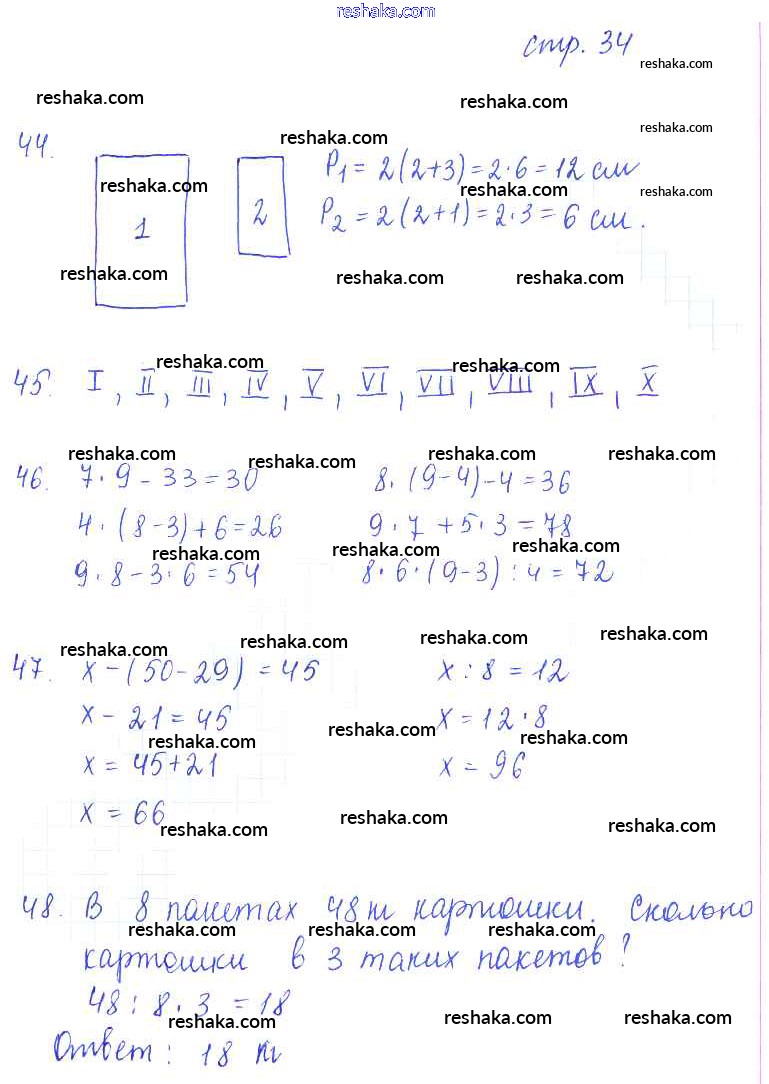 reshaka.com
стр. 34 reshaka.com
reshaka.com reshaka.com
44. reshaka.com reshaka.com
P₁ = 2(2+3) = 2·6 = 12 см
reshaka.com reshaka.com reshaka.com
1 2 P₂ = 2(2+1) = 2·3 = 6 см.
reshaka.com reshaka.com reshaka.com
reshaka.com reshaka.com
45. I, II, III, IV, V, VI, VII, VIII, IX, X
reshaka.com reshaka.com reshaka.com reshaka.com
46. 7·9-33=30 8·(9-4)-4=36
4·(8-3)+6=26 9·7+5·3=78
reshaka.com reshaka.com reshaka.com
9·8-3·6=54 8·6·(9-3):4=72
reshaka.com reshaka.com reshaka.com reshaka.com
47. x-(50-29)=45 x:8=12
x-21=45 x=12·8
reshaka.com reshaka.com reshaka.com
x=45+21 x=96
x=66
reshaka.com reshaka.com reshaka.com
48. В 8 пакетах 48 кг картошки. Сколько
reshaka.com reshaka.com reshaka.com
картошки в 3 таких пакетов?
48:8·3=18
reshaka.com reshaka.com reshaka.com
Ответ: 18 кг